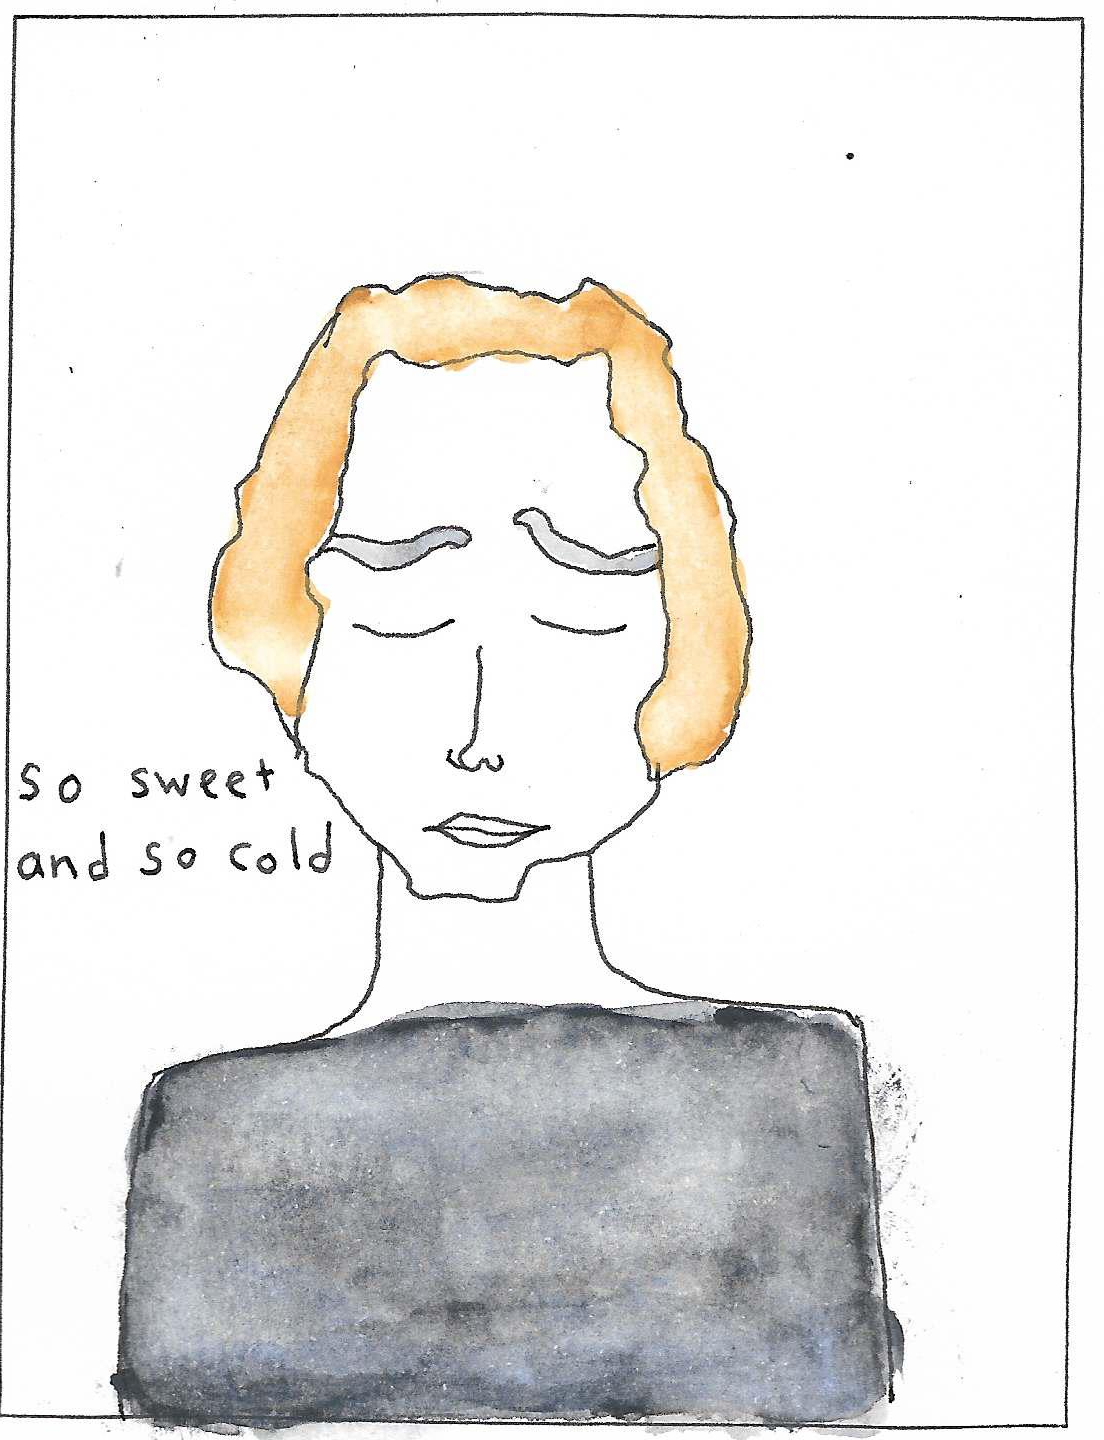 so sweet
and so cold